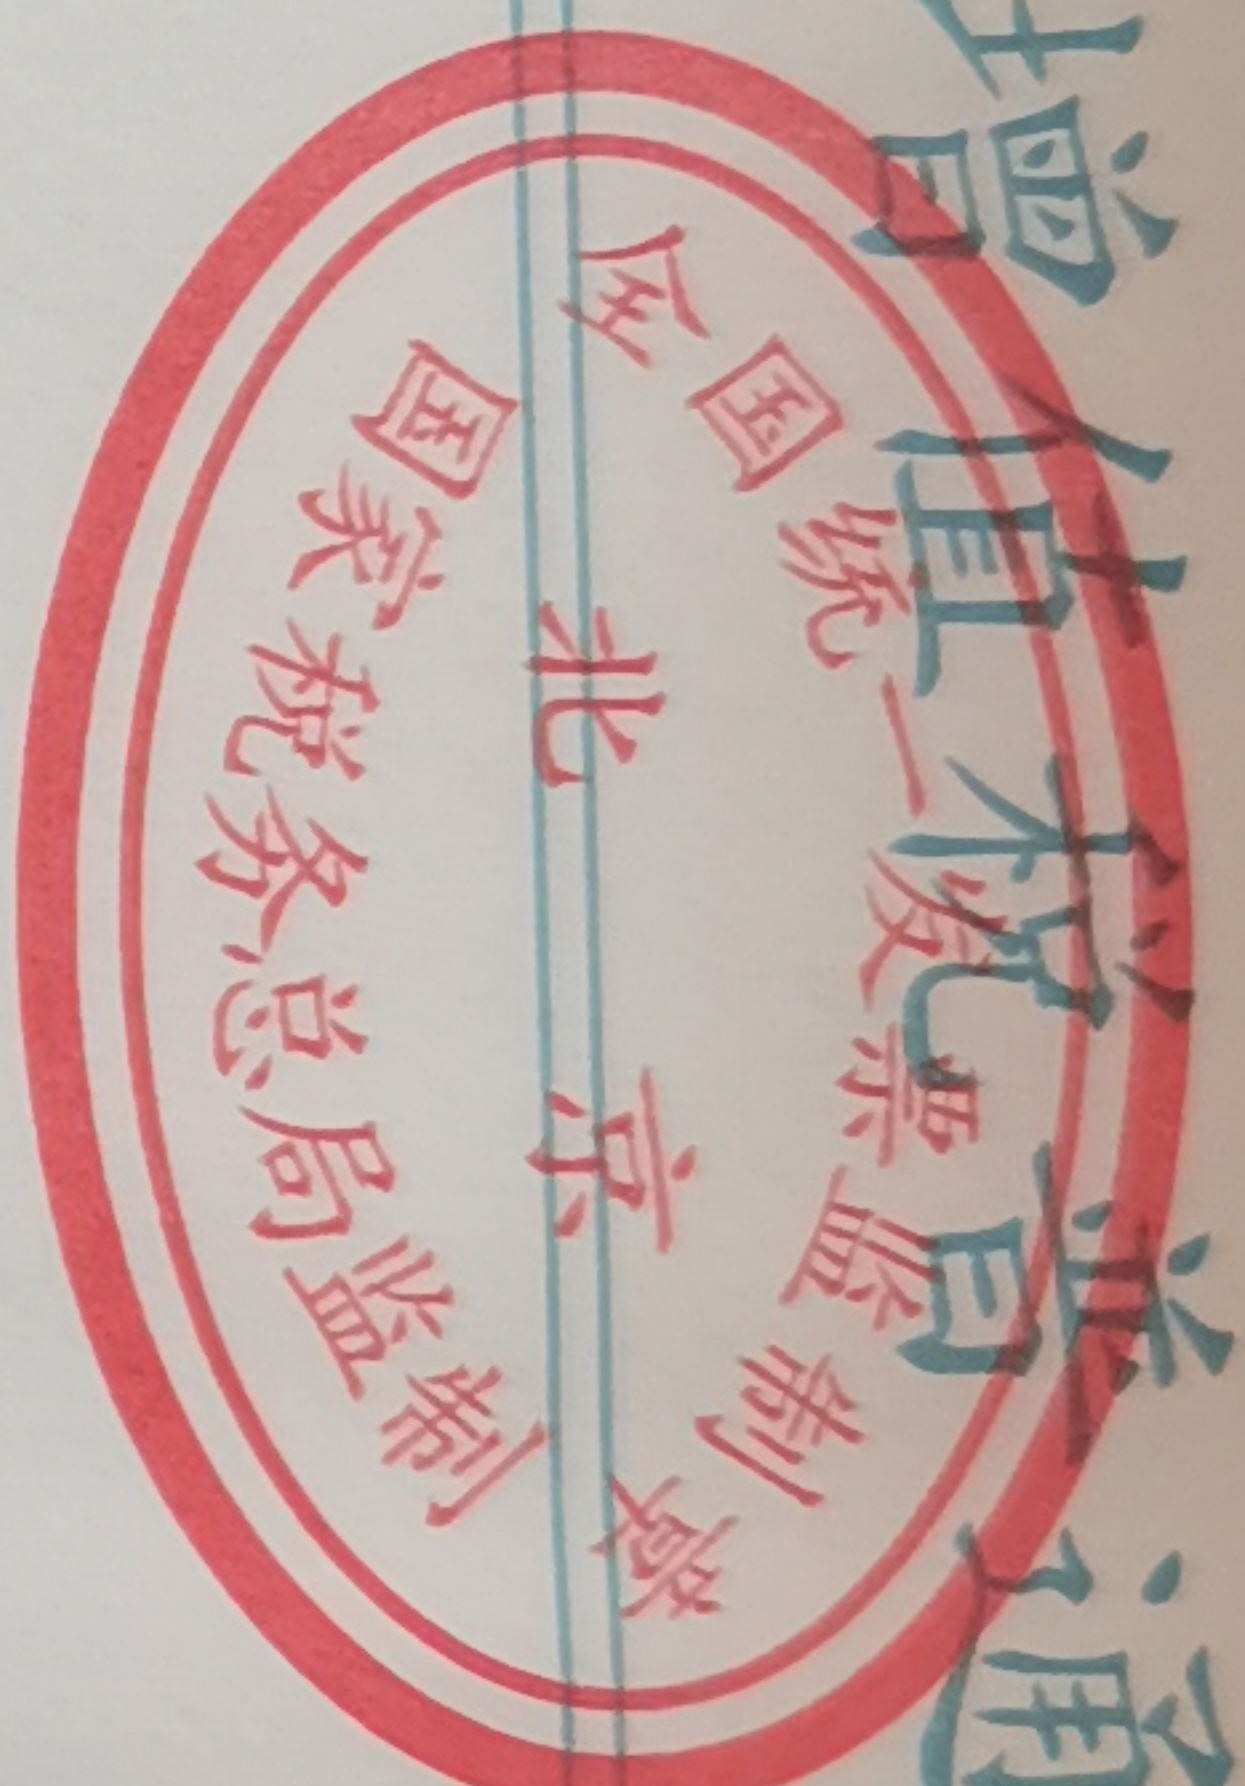 增值税普通
全国统一发票监制章
北京
国家税务总局监制